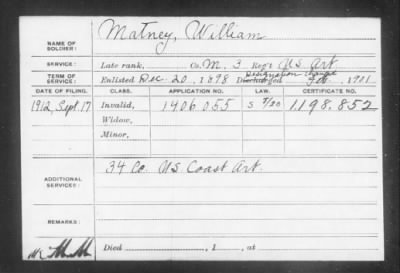 NAME OF SOLDIER: Matney, William
SERVICE: Late rank, Co. M, 3 Reg't US Art
TERM OF SERVICE: Enlisted Dec. 20, 1898 Discharged designation change Feb., 1901
DATE OF FILING. CLASS. APPLICATION NO. LAW. CERTIFICATE NO.
1912, Sept. 17 Invalid, 1406055 S 1.198.852
Widow,
Minor,
ADDITIONAL SERVICES: 34 Co. US Coast Art.
REMARKS:
Died , 1 , at